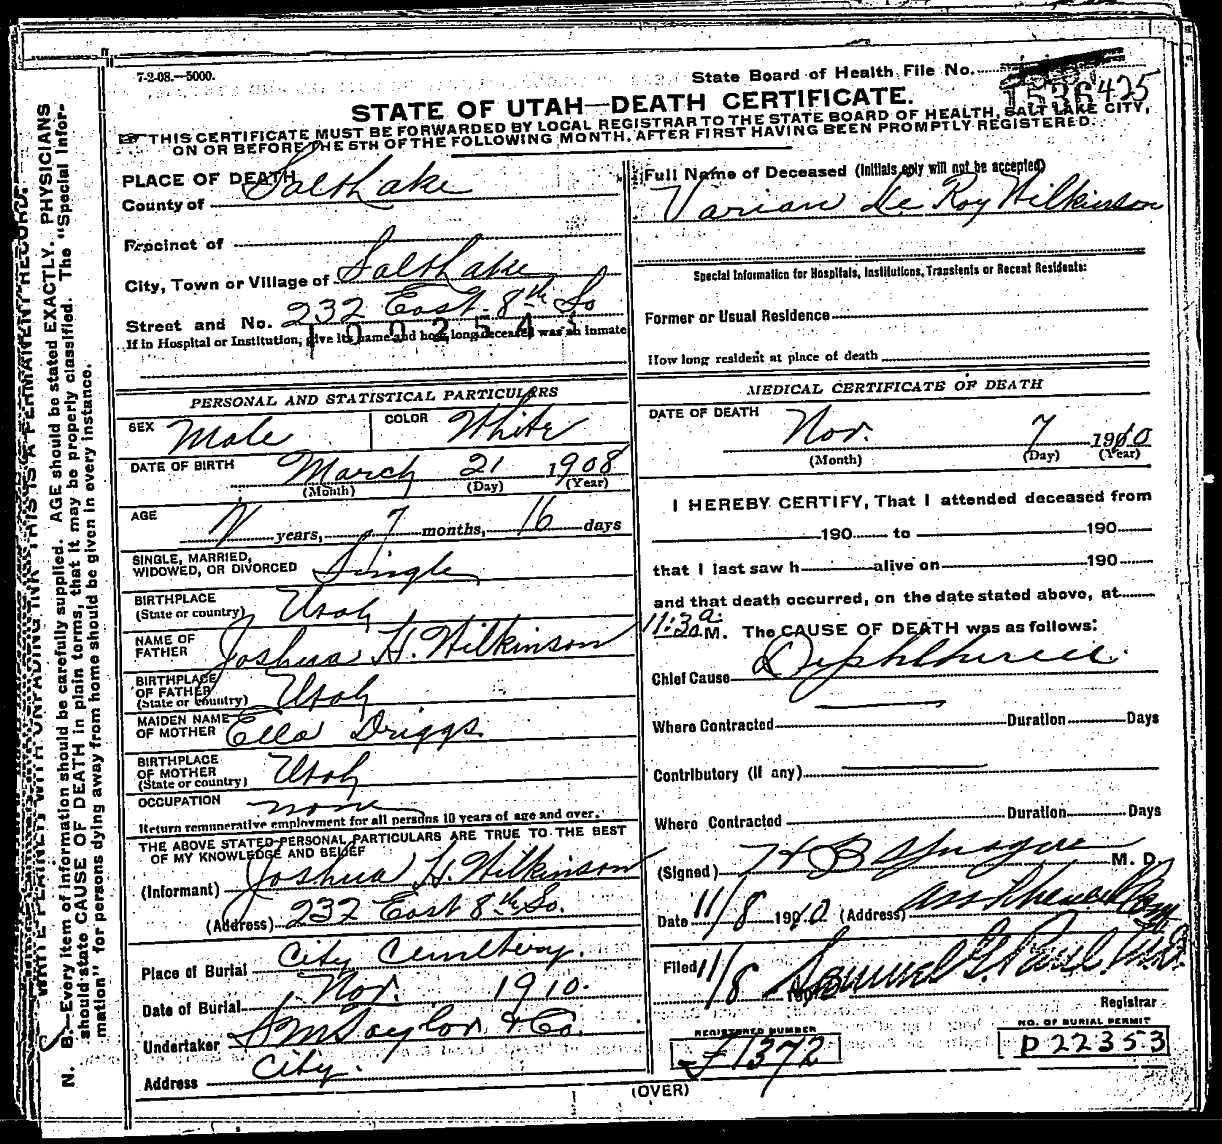 7-2-08.—5000.
State Board of Health File No.
1536 425
STATE OF UTAH—DEATH CERTIFICATE.
☞ THIS CERTIFICATE MUST BE FORWARDED BY LOCAL REGISTRAR TO THE STATE BOARD OF HEALTH, SALT LAKE CITY,
ON OR BEFORE THE 5TH OF THE FOLLOWING MONTH, AFTER FIRST HAVING BEEN PROMPTLY REGISTERED.
PLACE OF DEATH
County of Salt Lake
Precinct of
City, Town or Village of Salt Lake
Street and No. 232 East 8th So
If in Hospital or Institution, give its name and how long deceased was an inmate
Full Name of Deceased (Initials only will not be accepted)
Varian Le Roy Wilkinson
Special Information for Hospitals, Institutions, Transients or Recent Residents:
Former or Usual Residence
How long resident at place of death
PERSONAL AND STATISTICAL PARTICULARS
SEX Male COLOR White
DATE OF BIRTH March 21 1908
(Month) (Day) (Year)
AGE
2 years, 7 months, 16 days
SINGLE, MARRIED,
WIDOWED, OR DIVORCED Single
BIRTHPLACE
(State or country) Utah
NAME OF
FATHER Joshua H. Wilkinson
BIRTHPLACE
OF FATHER
(State or country) Utah
MAIDEN NAME
OF MOTHER Ella Driggs
BIRTHPLACE
OF MOTHER
(State or country) Utah
OCCUPATION none
Return remunerative employment for all persons 10 years of age and over.
THE ABOVE STATED PERSONAL PARTICULARS ARE TRUE TO THE BEST
OF MY KNOWLEDGE AND BELIEF
(Informant) Joshua H. Wilkinson
(Address) 232 East 8th So.
Place of Burial City Cemetery.
Date of Burial Nov. 1910.
Undertaker S M Taylor & Co.
Address City.
MEDICAL CERTIFICATE OF DEATH
DATE OF DEATH Nov. 7 1910
(Month) (Day) (Year)
I HEREBY CERTIFY, That I attended deceased from
190 to 190
that I last saw h alive on 190
and that death occurred, on the date stated above, at
11:30 a. M. The CAUSE OF DEATH was as follows:
Chief Cause Diphtheria
Where Contracted Duration Days
Contributory (if any)
Where Contracted Duration Days
(Signed) H B Sprague M. D.
Date 11/8 1910 (Address)
Filed 11/8 190 Samuel G. Paul M.D.
Registrar
REGISTERED NUMBER
F1372
NO. OF BURIAL PERMIT
D22353
(OVER)
WRITE PLAINLY WITH UNFADING INK—THIS IS A PERMANENT RECORD.
N. B.—Every item of information should be carefully supplied. AGE should be stated EXACTLY. PHYSICIANS
should state CAUSE OF DEATH in plain terms, that it may be properly classified. The "Special Infor-
mation" for persons dying away from home should be given in every instance.